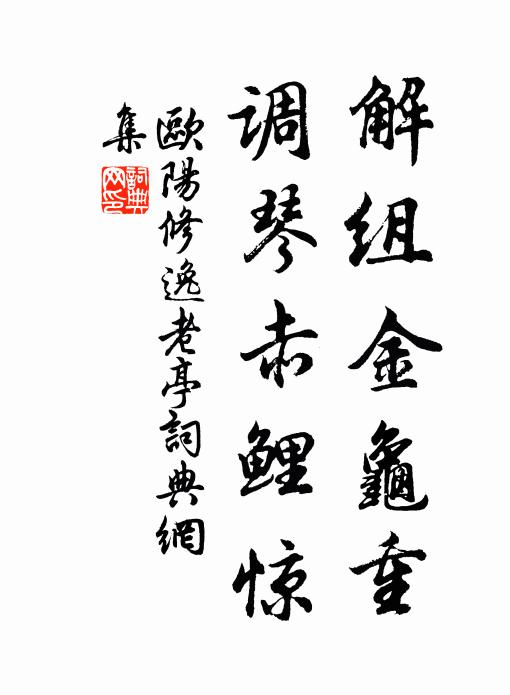 解组金龜重
调琴赤鲤惊
歐陽修逸老亭詞典網
集
詞典
网印